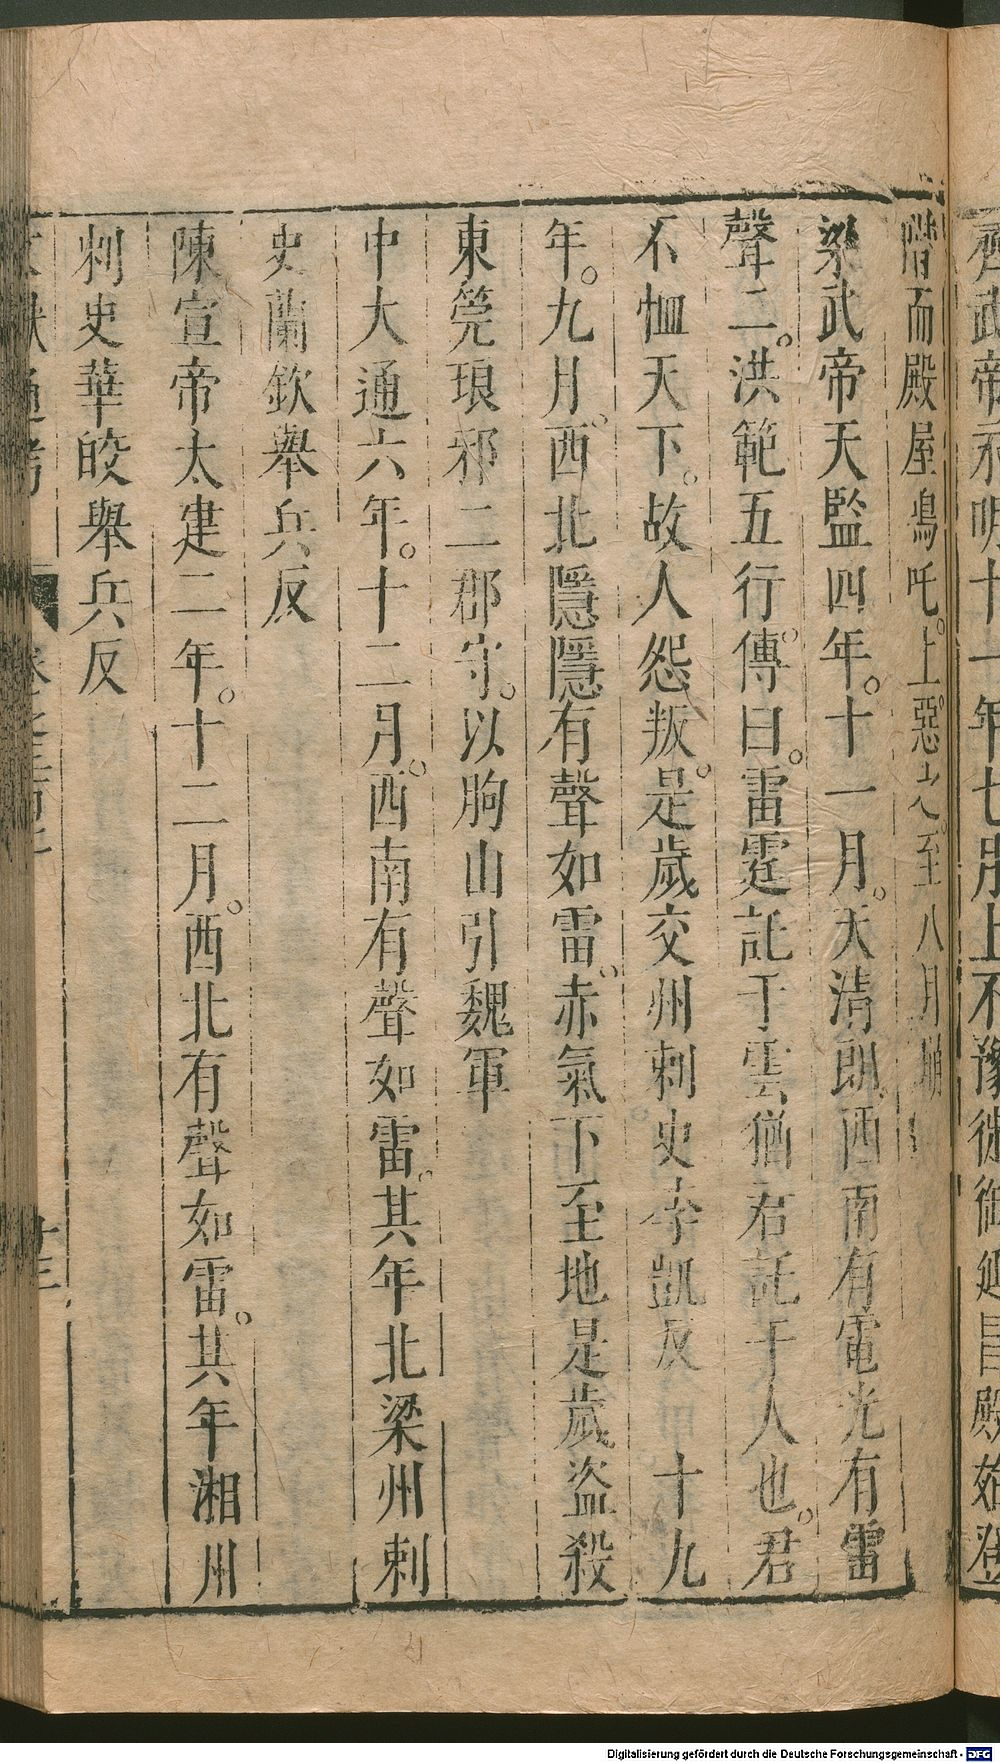 齊武帝永明十一年七月上不豫徙御延昌殿始登
階而殿屋鳴吒。上惡之。至八月崩
梁武帝天監四年。十一月。天清朗。西南有電光有雷
聲二。洪範五行傳曰。雷霆託于雲猶君託于人也。君
不恤天下。故人怨叛。是歲交州刺史李凱反 十九
年。九月。西北隱隱有聲如雷。赤氣下至地是歲盜殺
東筦琅邪二郡守。以朐山引魏軍
中大通六年。十二月。西南有聲如雷。其年北梁州刺
史蘭欽舉兵反
陳宣帝太建二年。十二月。西北有聲如雷。其年湘州
刺史華皎舉兵反
文獻通考 十三
Digitalisierung gefördert durch die Deutsche Forschungsgemeinschaft - DFG